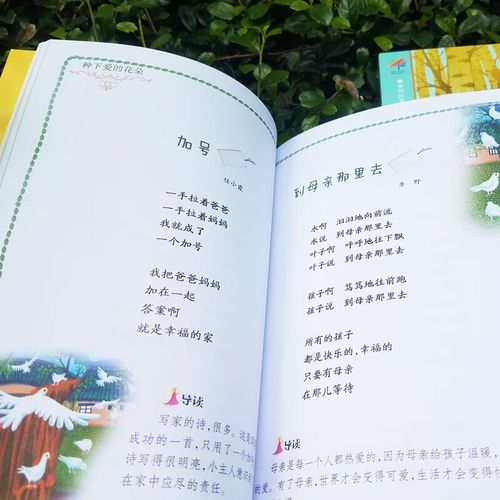 种下爱的花朵
加号
任小霞
一手拉着爸爸
一手拉着妈妈
我就成了
一个加号
我把爸爸妈妈
加在一起
答案啊
就是幸福的家
导读
写家的诗，很多。这是
成功的一首，只用了一个加
诗写得很明亮，小主人
在家中应尽的责任。
到母亲那里去
圣野
水啊 汩汩地向前流
水说 到母亲那里去
叶子啊 呼呼地往下飘
叶子说 到母亲那里去
孩子啊 笃笃地往前跑
孩子说 到母亲那里去
所有的孩子
都是快乐的、幸福的
只要有母亲
在那儿等待
导读
母亲是每一个人都热爱的，因为母亲给孩子温暖，
爱。有了母亲，世界才会变得可爱，生活才会变得